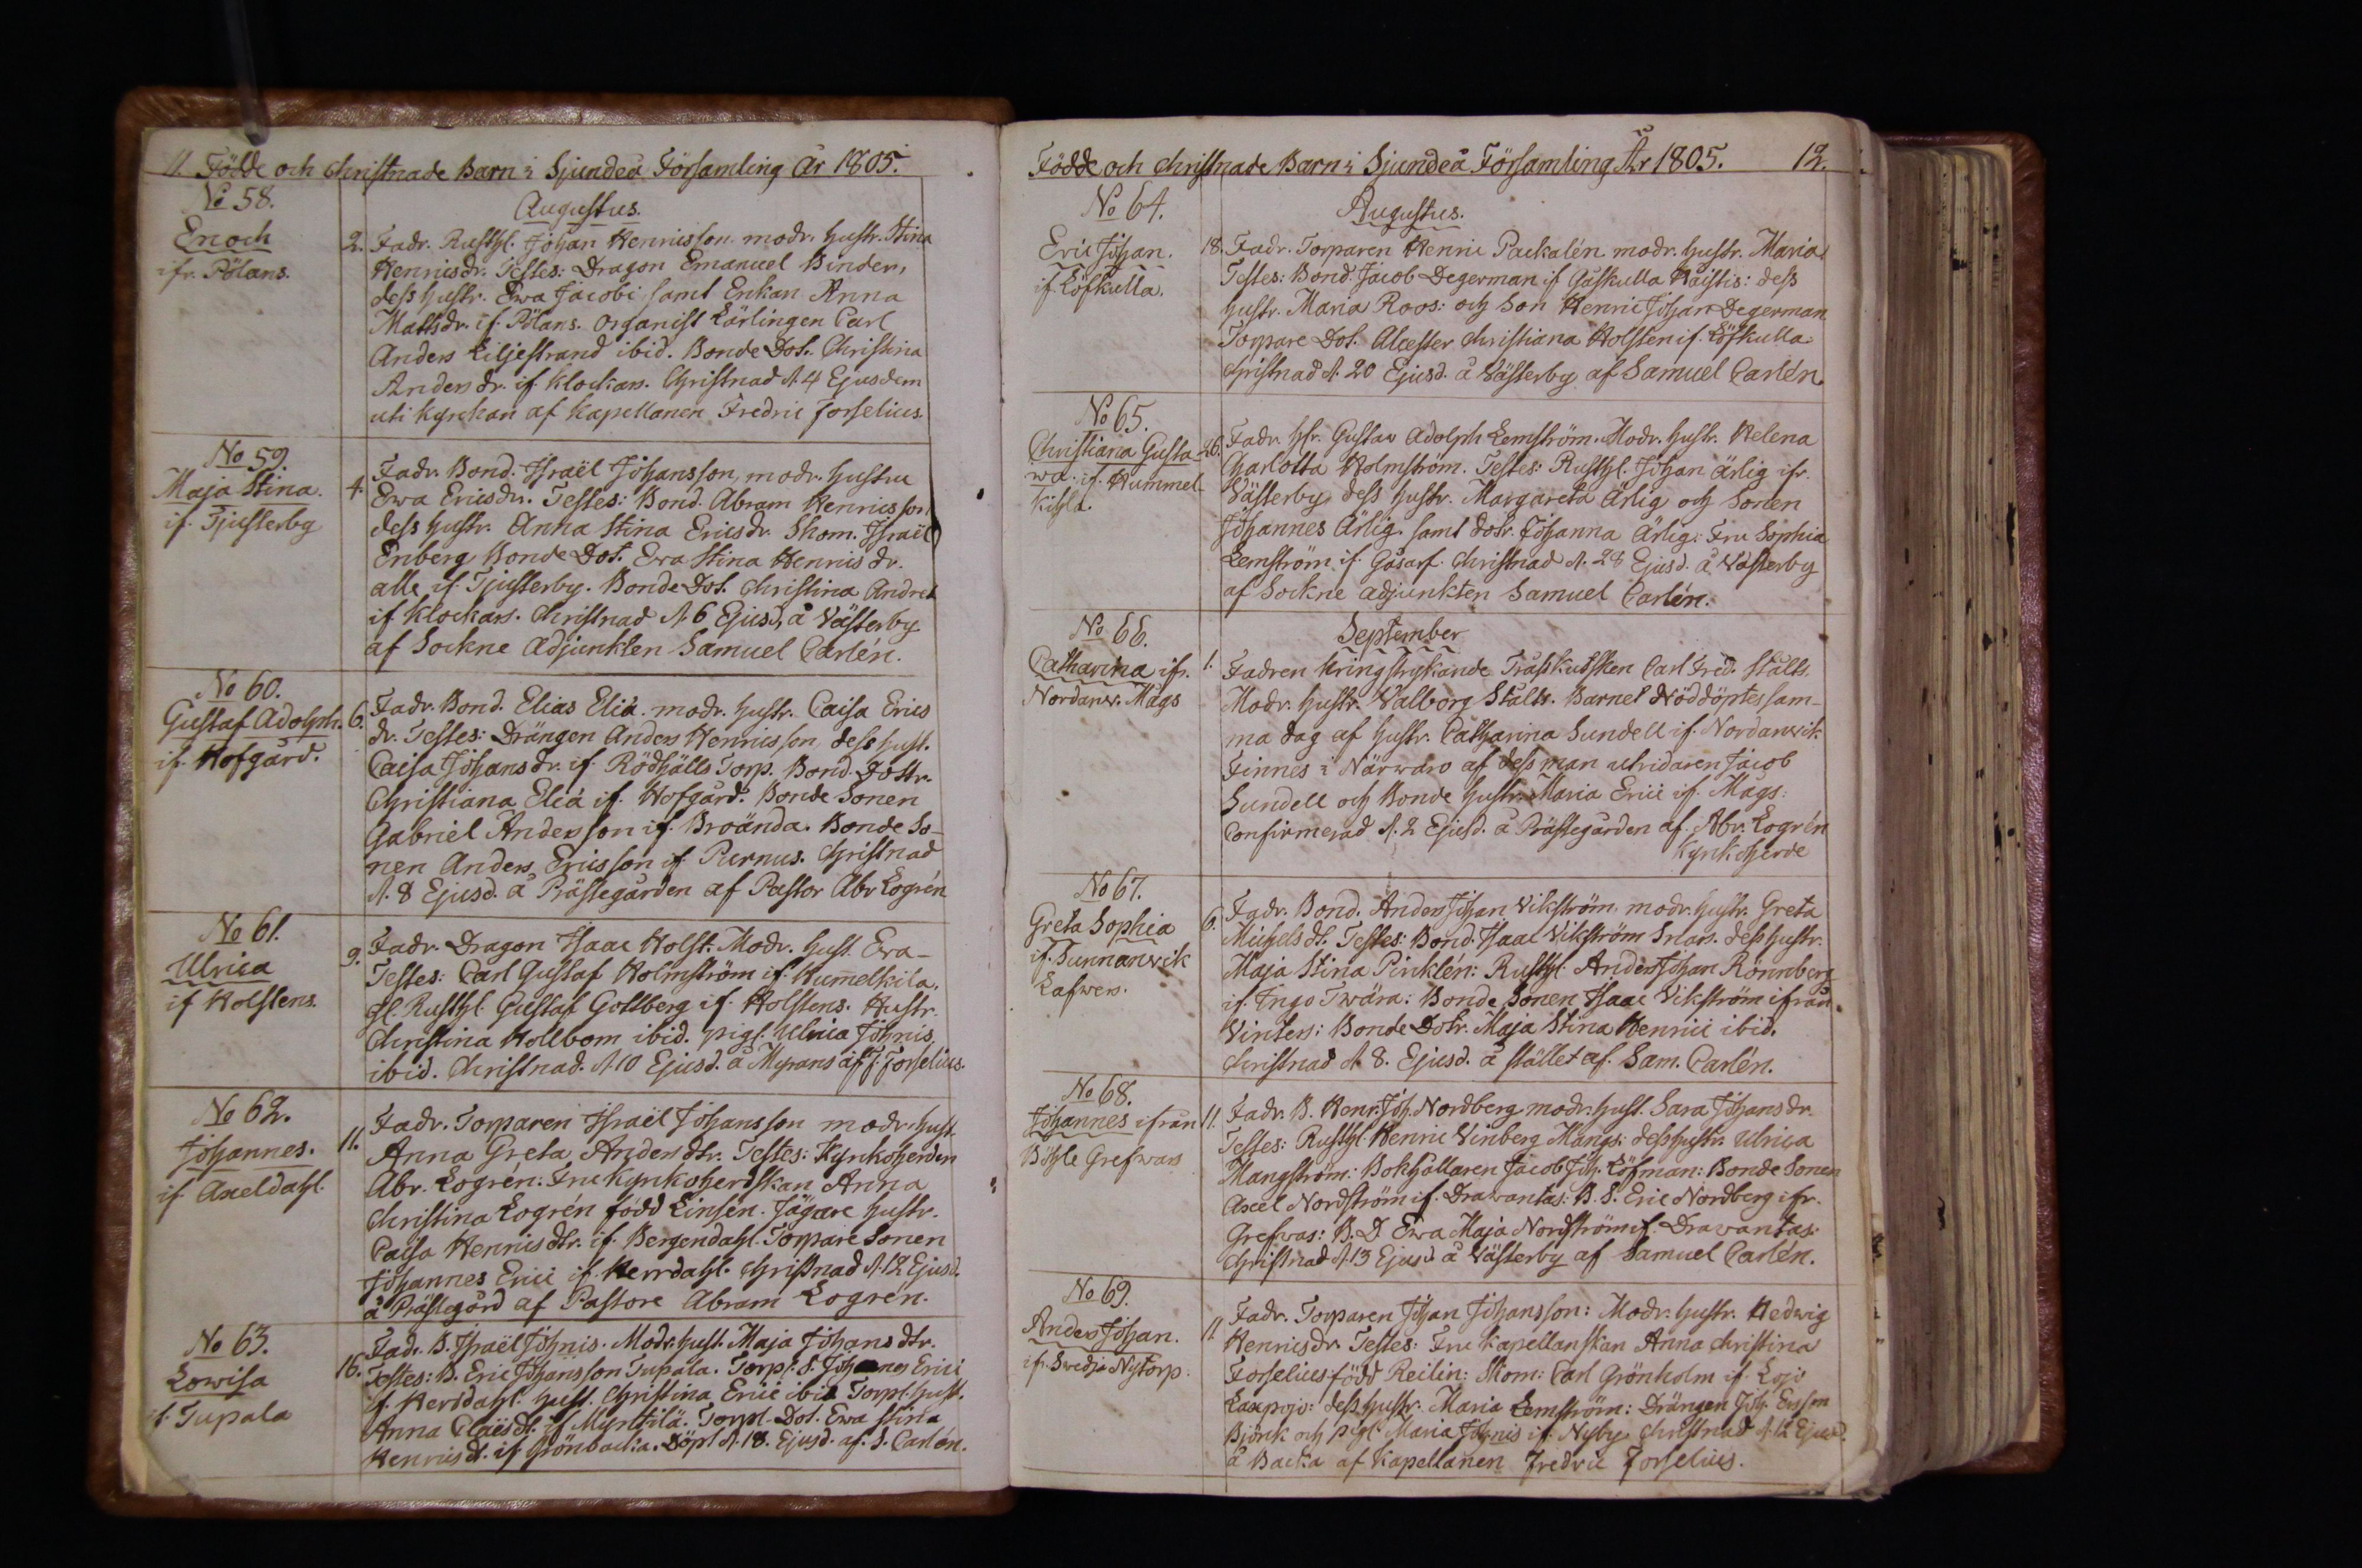 11. Födde och christnade Barn i Sjundeå Församling år 1805.
No 58.
Augustus.
Enoch
ifr. Pölans.
2. Fadr. Rusthl. Johan Henricsson. modr. hustr. Stina
Henricsdr. Testes: Dragon Emanuel Binder,
dess hustr. Ewa Jacobi samt Enkan Anna
Matsdr. if. Pölans. Organist Lärlingen Carl
Anders Liljestrand ibid. Bonde Dot. Christina
Andersdr. if Klockars. Christnad d. 4 Ejusdem
uti kyrckan af kapellanen Fredric Forselius.
No 59.
Maja Stina.
if. Tjusterby
4. Fadr. Bond. Israël Johansson, modr. hustru
Ewa Ericsdr. Testes: Bond. Abram Henricsson
dess hustr. Anna Stina Ericsdr. Skom. Israël
Enberg Bonde Dot. Eva Stina Henricsdr.
alle if. Tjusterby. Bonde Dot. Christina Andreæ
if Klockars. Christnad d. 6 Ejusd. å Västerby
af Sockne adjunkten Samuel Carlén.
No 60.
Gustaf Adolph.
if. Hofgård.
6. Fadr. Bond. Elias Eliæ. modr. hustr. Caisa Erics
dr. Testes: Drängen Anders Henricsson, dess hust.
Caisa Johansdr. if. Rödhälls Torp. Bond. Dottr.
Christiana Eliæ if. Hofgård. Bonde Sonen
Gabriel Andersson if. Broända. Bonde So-
nen Anders Ericsson if. Purnus. Christnad
d. 8 Ejusd. å Prästegården af Pastor Abr Logrén
No 61.
Ulrica
if Holstens.
9. Fadr. Dragon Isaac Holst. Modr. hust. Eva-
Testes: Carl Gustaf Holmström if. Hummelkila,
gl. Rusthl. Gustaf Gottberg if. Holstens. Hustr.
Christina Hollbom ibid. pigl. Ulrica Johnis,
ibid. Christnad. d. 10 Ejusd. å Myrans af F. Forselius.
No 62.
Johannes.
if. Axeldahl.
11. Fadr. Torparen Israël Johansson modr. hust
Anna Greta Andersdtr. Testes: Kyrkoherden
Abr. Logrén: Fru Kyrkoherdskan Anna
Christina Logrén född Linsén. Jägare hustr.
Caisa Henricsdtr. if. Bergendahl. Torpare Sonen
Johannes Erici if. Herrdahl. christnad d. 12 Ejusd.
å Prästegård af Pastore Abram Logrén.
No 63.
Lowisa
if. Tupala
16. Fadr. B. Israël Johnis. Modr. hust. Maja Johansdtr.
Testes: B. Eric Johansson Tupala. Torp: S. Johannes Erici
if. Herrdahl. hust. Christina Erici ibid. Torpl. hust.
Anna Claësdt. if Myntilä. Torpl. Dot. Ewa Stina
Henricsdt. if Grönbacka. Döpt d. 18. Ejusd. af. S. Carlén.
Födde och christnade Barn i Sjundeå Församling År 1805. 12.
No 64.
Augustus.
Eric Johan.
if. Löfkulla.
18. Fadr. Torparen Henric Packalén modr. hustr. Maria
Testes: Bond. Jacob Degerman if Gåskulla Håistis: dess
hustr. Maria Roos: och Son Henric Johan Degerman
Torpare Dot. Alcester Christiana Holsten if. Löfkulla
christnad d. 20 Ejusd. å Västerby af Samuel Carlén.
No 65.
Christiana Gusta-
wa. if. Hummel-
kihla.
26. Fadr. hr. Gustav Adolph Lemström. Modr. hustr. Helena
Charlotta Holmström. Testes: Rusthl. Johan Ärlig ifr.
Västerby dess hustr. Margareta Ärlig och Sonen
Johannes Ärlig. samt dotr. Johanna Ärlig. Fru Sophia
Lemström if. Gåsarf. Christnad d. 28 Ejusd. å Västerby
af Sockne adjunkten Samuel Carlén.
No 66.
September
Catharina ifr.
Nordanv. Mågs
1. Fadren kringstrykande Carl Fred. Stålts.
Modr. hustr. Valborg Stålts. Barnet Nöddöptes sam-
ma dag af hustr. Catharina Sundell if. Nordanvik
Finnes i Närwaro af dess man utridaren Jacob
Sundell och Bonde hustr. Maria Erici if. Mågs:
Confirmerad d. 2 Ejusd. å Prästegården af. Abr. Logrén
Kyrkoherde
No 67.
Greta Sophia
if. Sunnanvik
Lafwers.
6. Fadr. Bond. Anders Johan Vikström, modr. hustr. Greta
Michelsdt. Testes: Bond. Isaac Vikström Snars. dess hustr.
Maja Stina Pinklén: Rusthl. Anders Johan Rönnberg
if. Ingo Twära: Bonde Sonen Isaac Vikström ifrån
Vinters: Bonde Dotr. Maja Stina Henrici ibid.
christnad d. 8. Ejusd. å stället af. Sam. Carlén.
No 68.
Johannes ifrån
Böhle Grefwas
11. Fadr. B. Henr. Joh. Nordberg modr. hust. Sara Johansdr.
Testes: Rusthl. Henric Vinberg Mangs: dess hustr. Ulrica
Mangström: Bokhållaren Jacob Joh. Löfman: Bonde Sonen
Axel Nordström if. Drawantas: B. S. Eric Nordberg ifr.
Grefvas: B. D Ewa Maja Nordström if. Dravantas.
Christnad d. 13 Ejusd å Västerby af Samuel Carlén.
No 69.
Anders Johan.
ifr. Svedja Nytorp.
11. Fadr. Torparen Johan Johansson: Modr. hustr. Hedwig
Henricsdr. Testes: Fru Kapellanskan Anna Christina
Forselius född Reilin: Skom: Carl Grönholm if. Lojo
Laxpojo: dess hustr. Maria Lemström: Drängen Joh. Ersson
Björk och pigl. Maria Johnis if. Nyby. Christnad d. 12 Ejusd.
å Backa af Kapellanen Fredric Forselius.